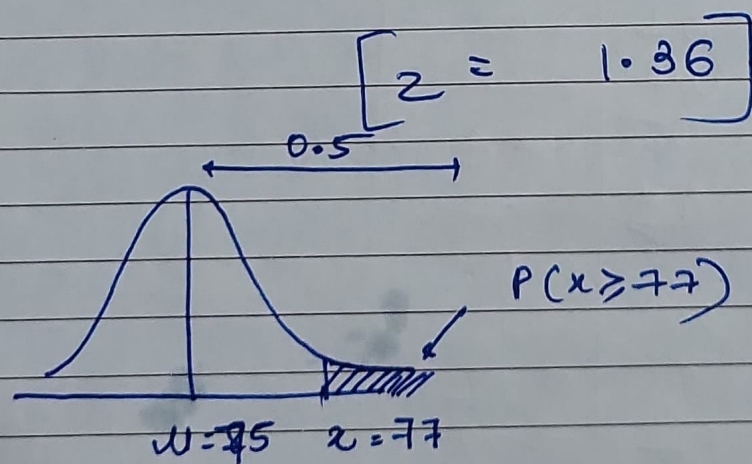 [z = 1.36]
0.5
P(x≥77)
μ=75 x=77